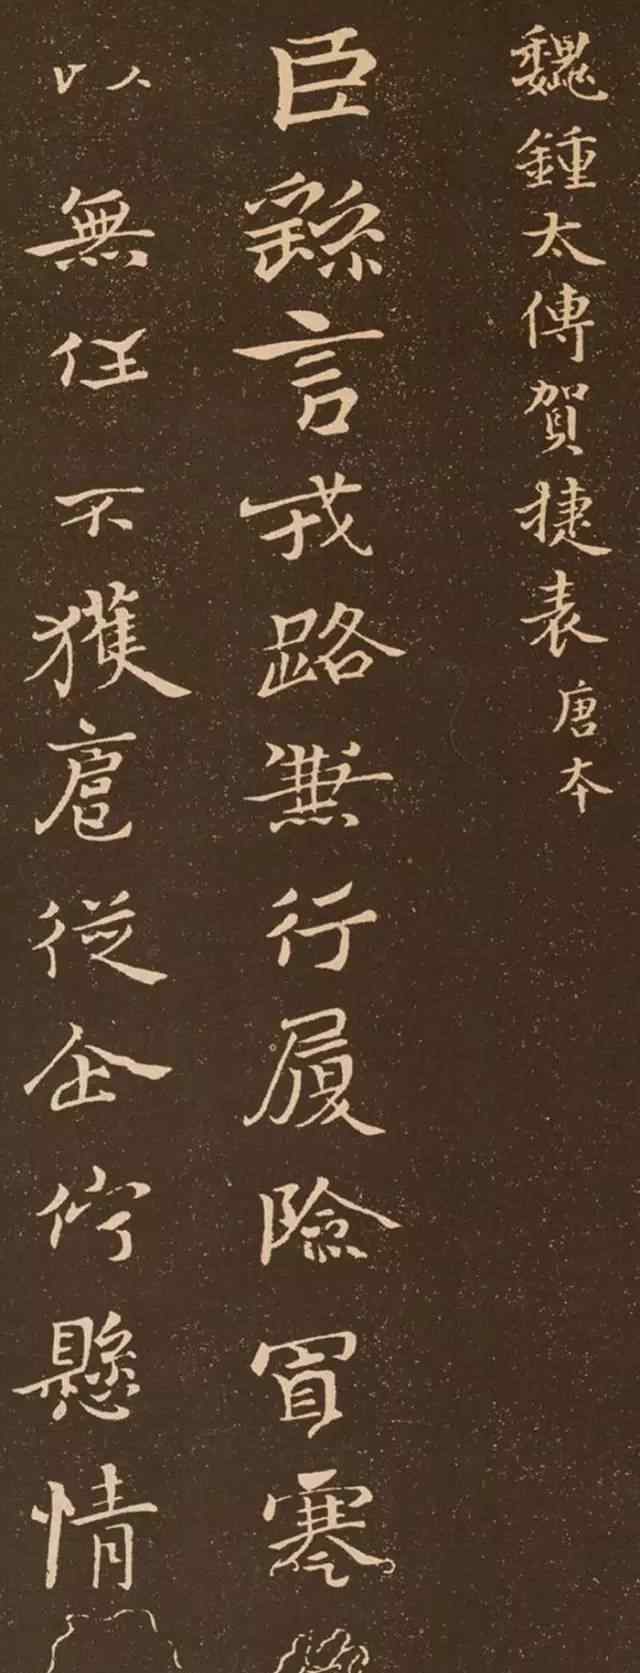 魏鍾太傅賀捷表唐本
臣繇言戎路兼行履險冒寒
以無任不獲扈從企佇懸情